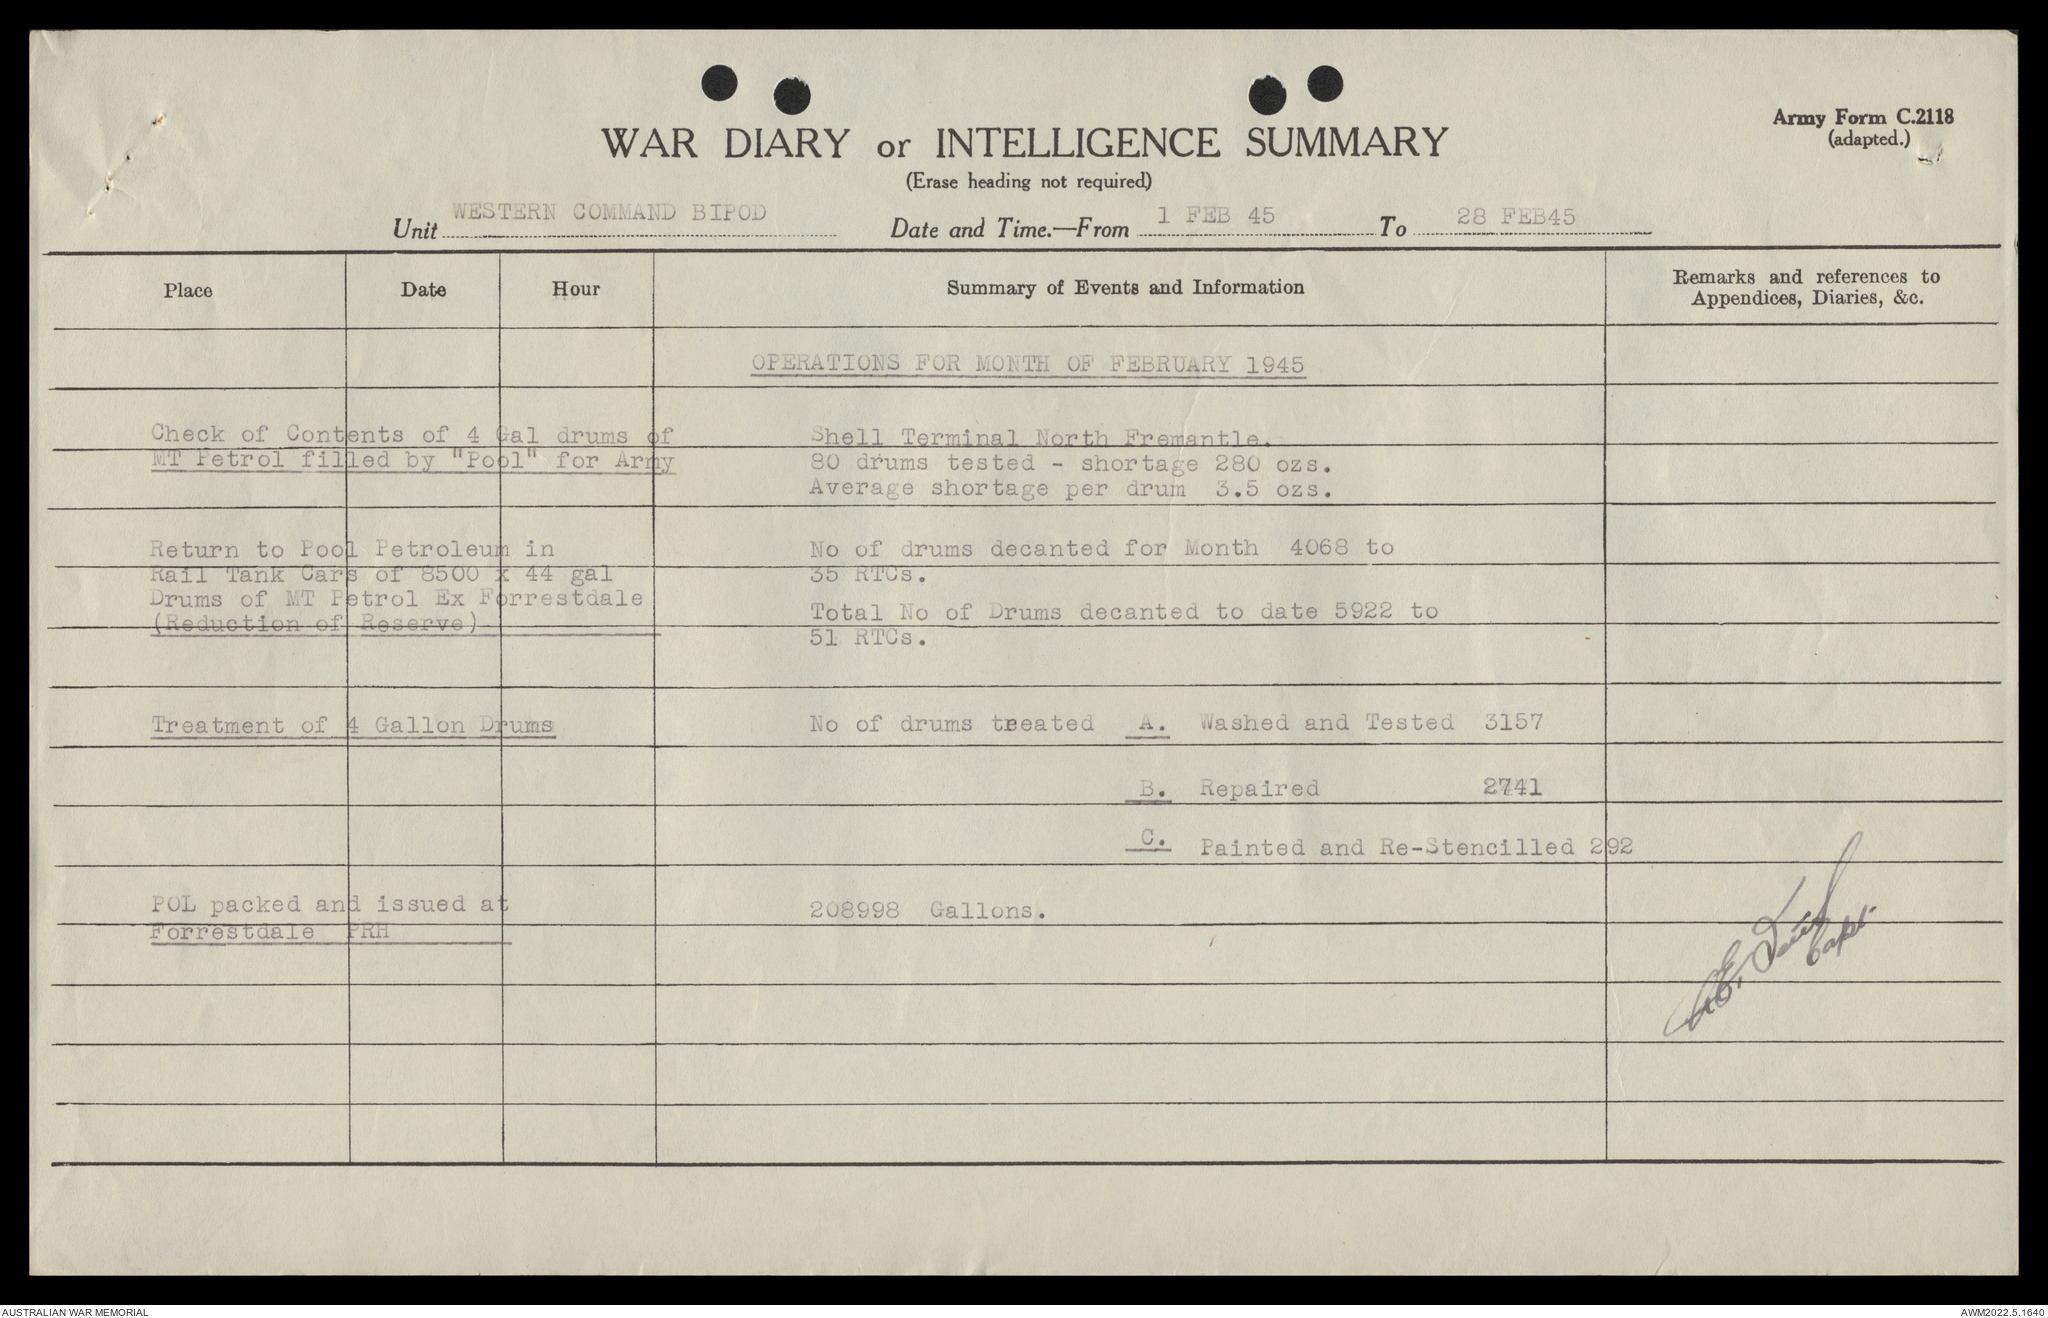 Army Form C.2118
(adapted.)
WAR DIARY or INTELLIGENCE SUMMARY
(Erase heading not required)
Unit WESTERN COMMAND BIPOD Date and Time.—From 1 FEB 45 To 28 FEB45
Place Date Hour Summary of Events and Information Remarks and references to
Appendices, Diaries, &c.
OPERATIONS FOR MONTH OF FEBRUARY 1945
Check of Contents of 4 Gal drums of Shell Terminal North Fremantle.
MT Petrol filled by "Pool" for Army 80 drums tested - shortage 280 ozs.
Average shortage per drum 3.5 ozs.
Return to Pool Petroleum in No of drums decanted for Month 4068 to
Rail Tank Cars of 8500 x 44 gal 35 RTCs.
Drums of MT Petrol Ex Forrestdale Total No of Drums decanted to date 5922 to
(Reduction of Reserve) 51 RTCs.
Treatment of 4 Gallon Drums No of drums treated A. Washed and Tested 3157
B. Repaired 2741
C. Painted and Re-Stencilled 292
POL packed and issued at 208998 Gallons.
Forrestdale PRH
Capt
AUSTRALIAN WAR MEMORIAL AWM2022.5.1640